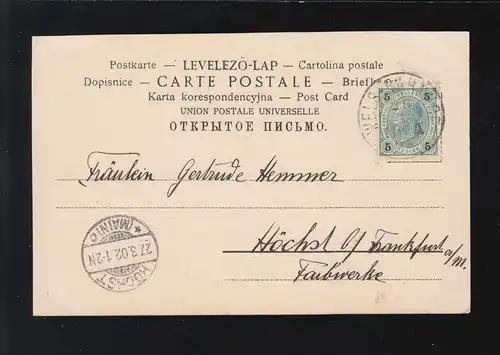 Postkarte — LEVELEZŐ-LAP — Cartolina postale
Dopisnice — CARTE POSTALE — Briefk
Karta korespondencyjna — Post Card
UNION POSTALE UNIVERSELLE
ОТКРЫТОЕ ПИСЬМО.
5 5
5 5
WELS
Fräulein Gertrude Hemmer
Höchst o/ Frankfurt a/M.
Farbwerke
* (MAIN) *
27.3.02.1-2N
HÖCHST